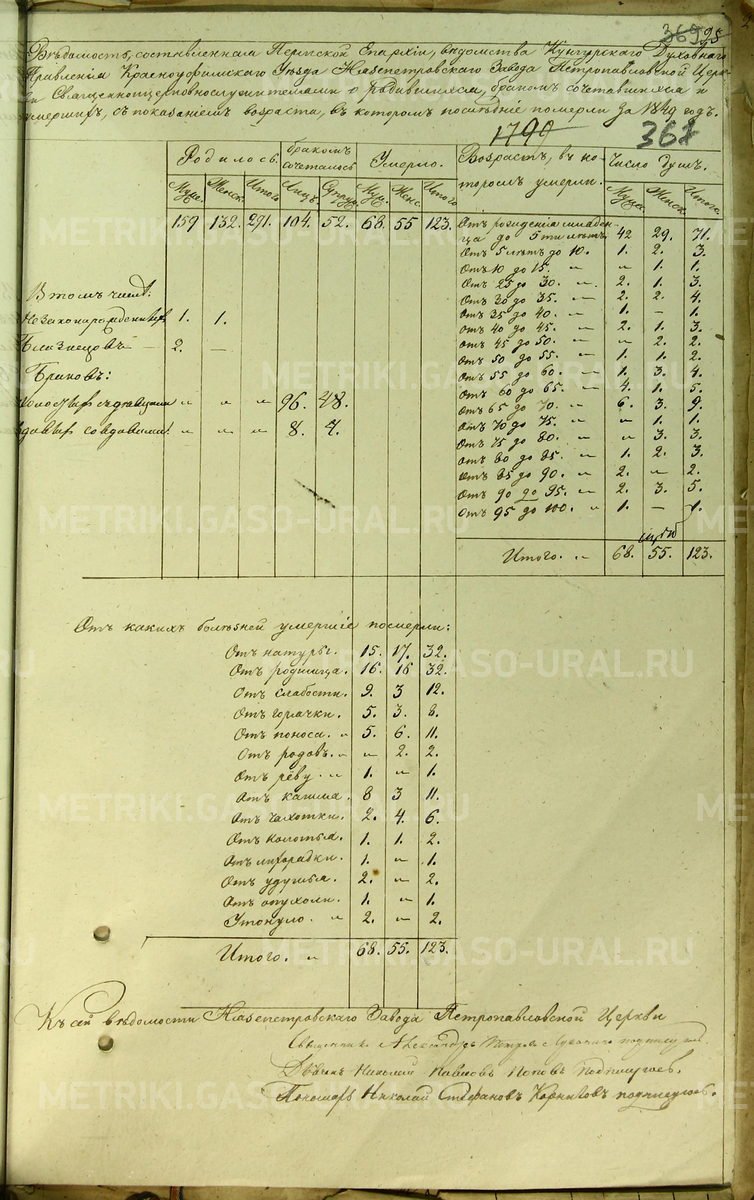 369 95
Вѣдомость, составленная Пермской Епархіи, вѣдомства Кунгурскаго Духовнаго
Правленія Красноуфимскаго Уѣзда Нязепетровскаго Завода Петропавловской Церк-
ви Священноцерковнослужителями о родившихся, бракомъ сочетавшихся и
умершихъ, съ показаніемъ возраста, въ которомъ послѣдніе померли за 1849 годъ.
1790 367
Родилось. бракомъ сочеталось Умерло. Возрастъ, въ ко-торомъ умерли. Число душъ.
Муж. Женск. Итого. Лицъ. Супруж. Муж. Женс. Итого. Муж. Женск. Итого.
159 132. 291. 104. 52. 68. 55 123.
Отъ рожденія младен-
ца до 5ти лѣтъ. 42 29. 71.
Отъ 5 лѣтъ до 10. 1. 2. 3.
Отъ 10 до 15. „ „ 1. 1.
Отъ 25 до 30. „ 2. 1. 3.
Отъ 30 до 35. „ 2. 2. 4.
Отъ 35 до 40. „ 1. — 1.
Отъ 40 до 45. „ 2. 1. 3.
Отъ 45 до 50. „ „ 2. 2.
Отъ 50 до 55. „ 1. 1. 2.
Отъ 55 до 60. „ 1. 3. 4.
Отъ 60 до 65. „ 4. 1. 5.
Отъ 65 до 70. „ 6. 3. 9.
Отъ 70 до 75. „ „ 1. 1.
Отъ 75 до 80. „ „ 3. 3.
Отъ 80 до 85. „ 1. 2. 3.
Отъ 85 до 90. „ 2. „ 2.
Отъ 90 до 95. „ 2. 3. 5.
Отъ 95 до 100. „ 1. — 1.
Итого. „ 68. 55. 123.
В томъ числѣ:
Незаконорожденныхъ 1. 1.
Близнецовъ — 2. —
Браковъ:
холостыхъ съ дѣвицами „ „ „ 96. 48.
вдовыхъ со вдовами. „ „ „ 8. 4.
Отъ какихъ болѣзней умершіе померли:
Отъ натуры. 15. 17. 32.
Отъ родимца. 16. 16 32.
Отъ слабости. 9. 3 12.
Отъ горячки. 5. 3. 8.
Отъ поноса. „ 5. 6. 11.
Отъ родовъ. „ „ 2. 2.
Отъ реву. „ 1. „ 1.
Отъ кашля. 8 3 11.
Отъ чахотки. 2. 4. 6.
Отъ колотья. 1. 1. 2.
Отъ лихорадки. 1. „ 1.
Отъ удушья. 2. „ 2.
Отъ опухоли. 1. „ 1.
Утонуло. „ 2. „ 2.
Итого. „ 68. 55. 123.
Къ сей вѣдомости Нязепетровскаго Завода Петропавловской Церкви
Священникъ Александръ
Дьячекъ Николай Поповъ Подписуюсь.
Пономарь Николай Стефановъ Корниловъ подписуюсь.
METRIKI.GASO-URAL.RU